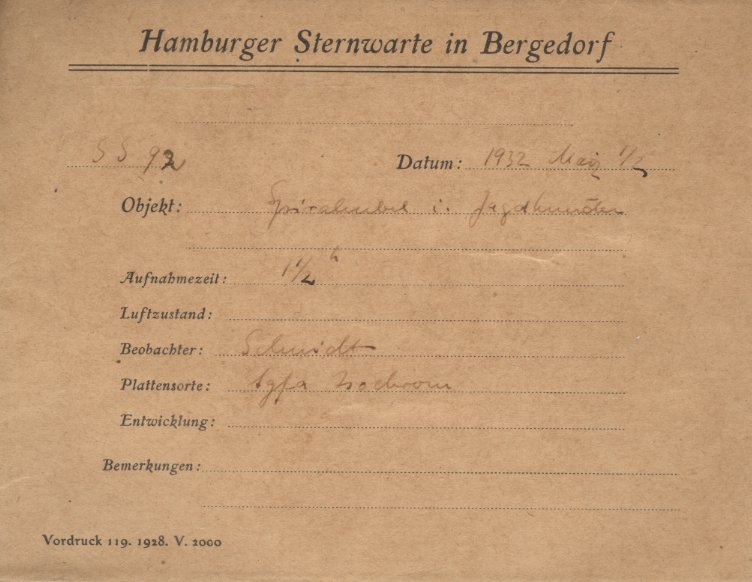 Hamburger Sternwarte in Bergedorf
SS 92 Datum: 1932 März 1/2
Objekt: Spiralnebel i. Jagdhunden
Aufnahmezeit: 1 1/2 h
Luftzustand:
Beobachter: Schmidt
Plattensorte: Agfa Isochrom
Entwicklung:
Bemerkungen:
Vordruck 119. 1928. V. 2000